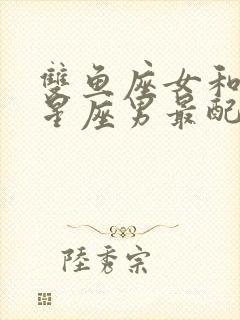 雙鱼座女和
星座男最配
陸秀宗